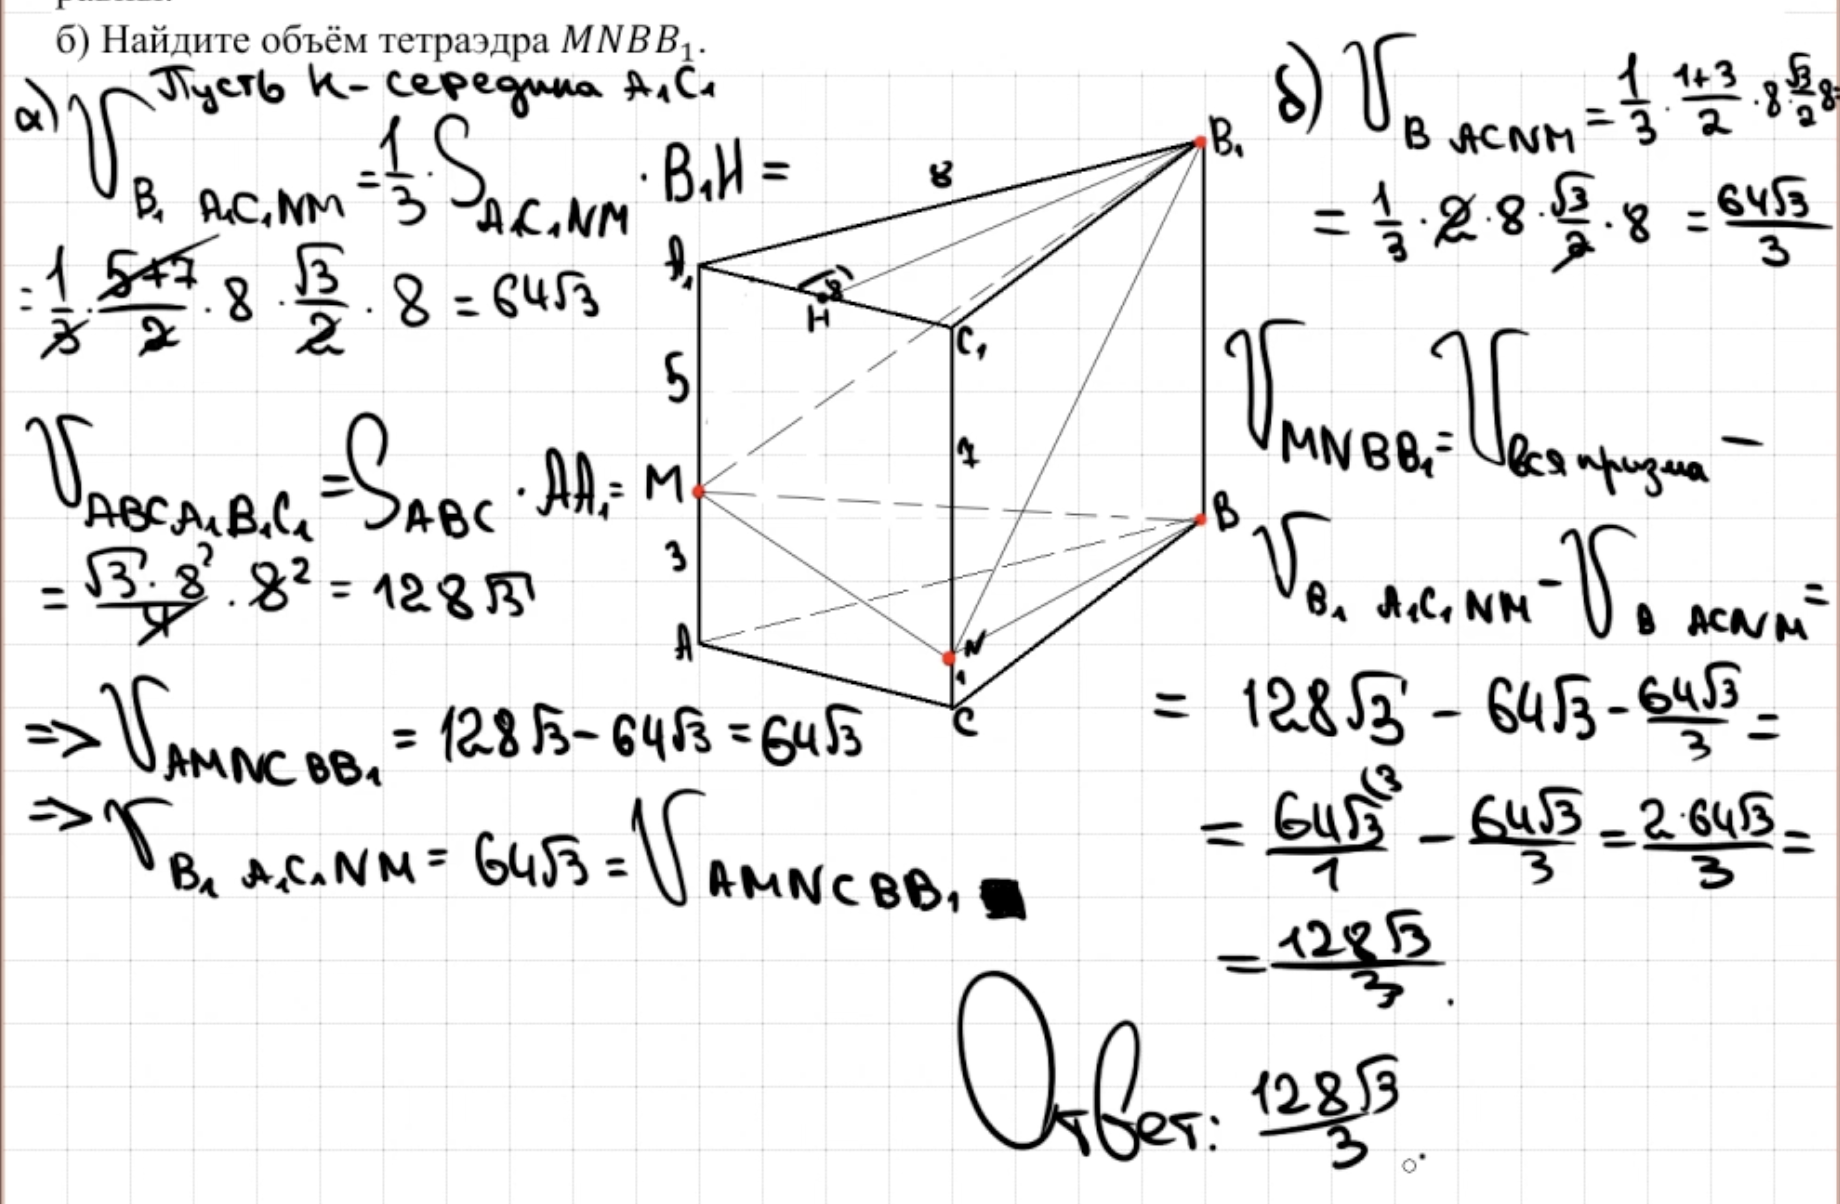 равны.
б) Найдите объём тетраэдра MNBB₁.
а) Пусть H - середина A₁C₁
V_{B₁ A₁C₁NM} = 1/3 · S_{A₁C₁NM} · B₁H =
= 1/3 · (5+7)/2 · 8 · √3/2 · 8 = 64√3
V_{ABCA₁B₁C₁} = S_{ABC} · AA₁ =
= (√3 · 8²)/4 · 8² = 128√3
=> V_{AMNCBB₁} = 128√3 - 64√3 = 64√3
=> V_{B₁ A₁C₁NM} = 64√3 = V_{AMNCBB₁} ■
B₁
8
A₁
H
C₁
5
7
M
B
3
A
N
1
C
б) V_{B ACNM} = 1/3 · (1+3)/2 · 8 · √3/2 · 8 =
= 1/3 · 2 · 8 · √3/2 · 8 = 64√3/3
V_{MNBB₁} = V_{вся призма} -
V_{B₁ A₁C₁NM} - V_{B ACNM} =
= 128√3 - 64√3 - 64√3/3 =
= 64√3/1 (3 - 64√3/3 = 2·64√3/3 =
= 128√3/3 .
Ответ: 128√3/3 .